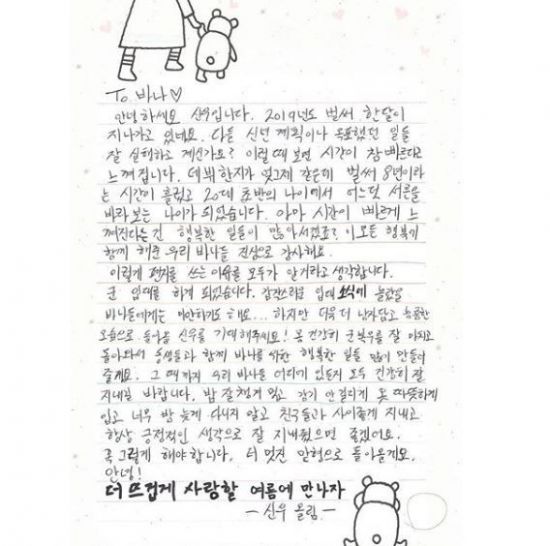 To 바나♡
안녕하세요 신우입니다. 2019년도 벌써 한달이
지나가고 있네요. 다들 신년 계획이나 목표했던 일들
잘 실행하고 계신가요? 이럴 때 보면 시간이 참 빠르다고
느껴집니다. 데뷔한지가 엊그제 같은데 벌써 8년이라
는 시간이 흘렀고 20대 초반의 나이에서 어느덧 서른을
바라보는 나이가 되었습니다. 아마 시간이 빠르게 느
껴진다는건 행복한 일들이 많아서겠죠? 이 모든 행복을
함께 해준 우리 바나들 진심으로 감사해요.
이렇게 편지를 쓰는 이유를 모두가 안거라고 생각합니다.
군 입대를 하게 되었습니다. 갑작스러운 입대 소식에 놀랐을
바나들에게는 미안하기도 해요... 하지만 더욱 더 남자답고 늠름한
모습으로 돌아올 신우를 기대해주세요! 몸 건강히 군복무를 잘 마치고
돌아와서 동생들과 함께 바나를 위한 행복한 일들 많이 만들어
줄게요. 그 때까지 우리 바나들 어디에 있든지 모두 건강히 잘
지내길 바랍니다. 밥 잘 챙겨 먹고 감기 안 걸리게 옷 따뜻하게
입고 너무 밤 늦게 다니지 말고 친구들과 사이좋게 지내고
항상 긍정적인 생각으로 잘 지내줬으면 좋겠어요.
꼭 그렇게 해야합니다. 더 멋진 맏형으로 돌아올게요.
안녕!
더 뜨겁게 사랑할 여름에 만나자
- 신우 올림 -